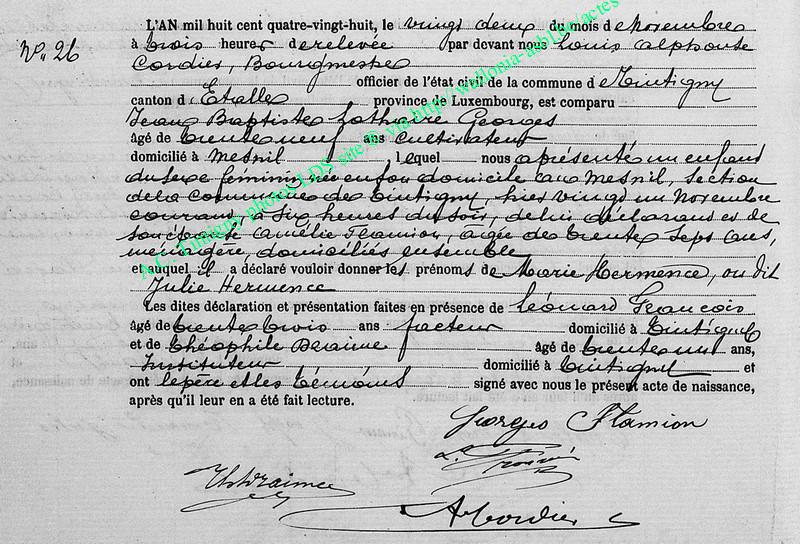 L'AN mil huit cent quatre-vingt-huit, le vingt deux du mois de Novembre
N° 26
à trois heures de relevée par devant nous Louis Alphonse
Cordier, Bourgmestre
officier de l'état civil de la commune d Tintigny
canton d Etalle province de Luxembourg, est comparu
Jean Baptiste Lothaire Georges
âgé de trente neuf ans cultivateur
domicilié à Mesnil lequel nous a présenté un enfant
du sexe féminin née en son domicile au Mesnil, section
de la commune de Tintigny, hier vingt un Novembre
courant, à six heures du soir, de lui déclarant et de
son épouse Amélie Flamion, agée de trente sept ans,
ménagère, domiciliés ensemble
et auquel il a déclaré vouloir donner les prénoms de Marie Hermence, ou dit
Julie Hermence
Les dites déclaration et présentation faites en présence de Léonard François
âgé de trente trois ans facteur domicilié à Tintigny
et de Théophile Braime âgé de trente un ans,
Instituteur domicilié à Tintigny et
ont le père et les témoins signé avec nous le présent acte de naissance,
après qu'il leur en a été fait lecture.
Georges Flamion
L.
Th Braime
A Cordier
A.C. Tintigny photos LDS site © via http://wallonia-asbl.be/actes